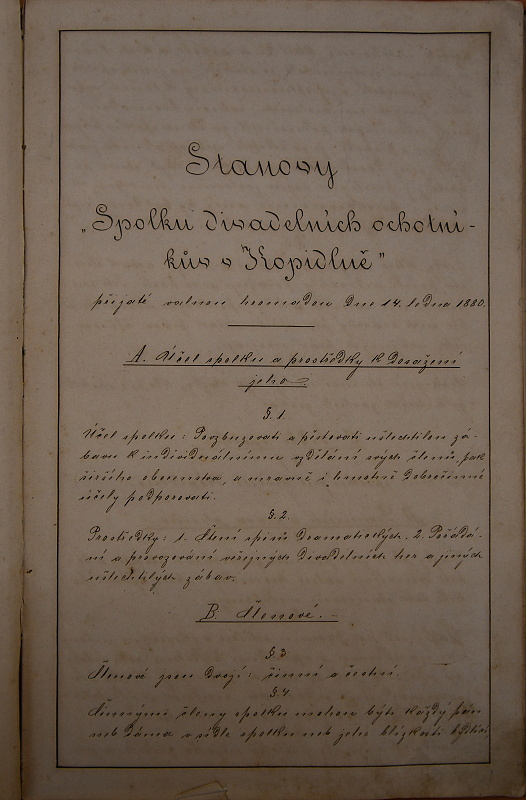 Stanovy
„Spolku divadelních ochotní-
kův v Kopidlně”
přijaté valnou hromadou dne 14. ledna 1880.
A. Účel spolku a prostředky k dosažení
jeho
§. 1
Účel spolku: Povzbuzovati a pěstovati ušlechtilou zá-
bavu k individuálnímu vzdělání svých členů, jak
širšího obecenstva, a mravně i hmotně dobročinné
účely podporovati.
§. 2.
Prostředky: 1. Čtení spisů dramatických. 2. Pořádá-
ní a provozování veřejných divadelních her a jiných
ušlechtilých zábav.
B. Členové.
§ 3
Členové jsou dvojí: činní a čestní.
§ 4.
Činnými členy spolku mohou býti každý pán
neb dáma v sídle spolku neb jeho blízkosti bydlící,